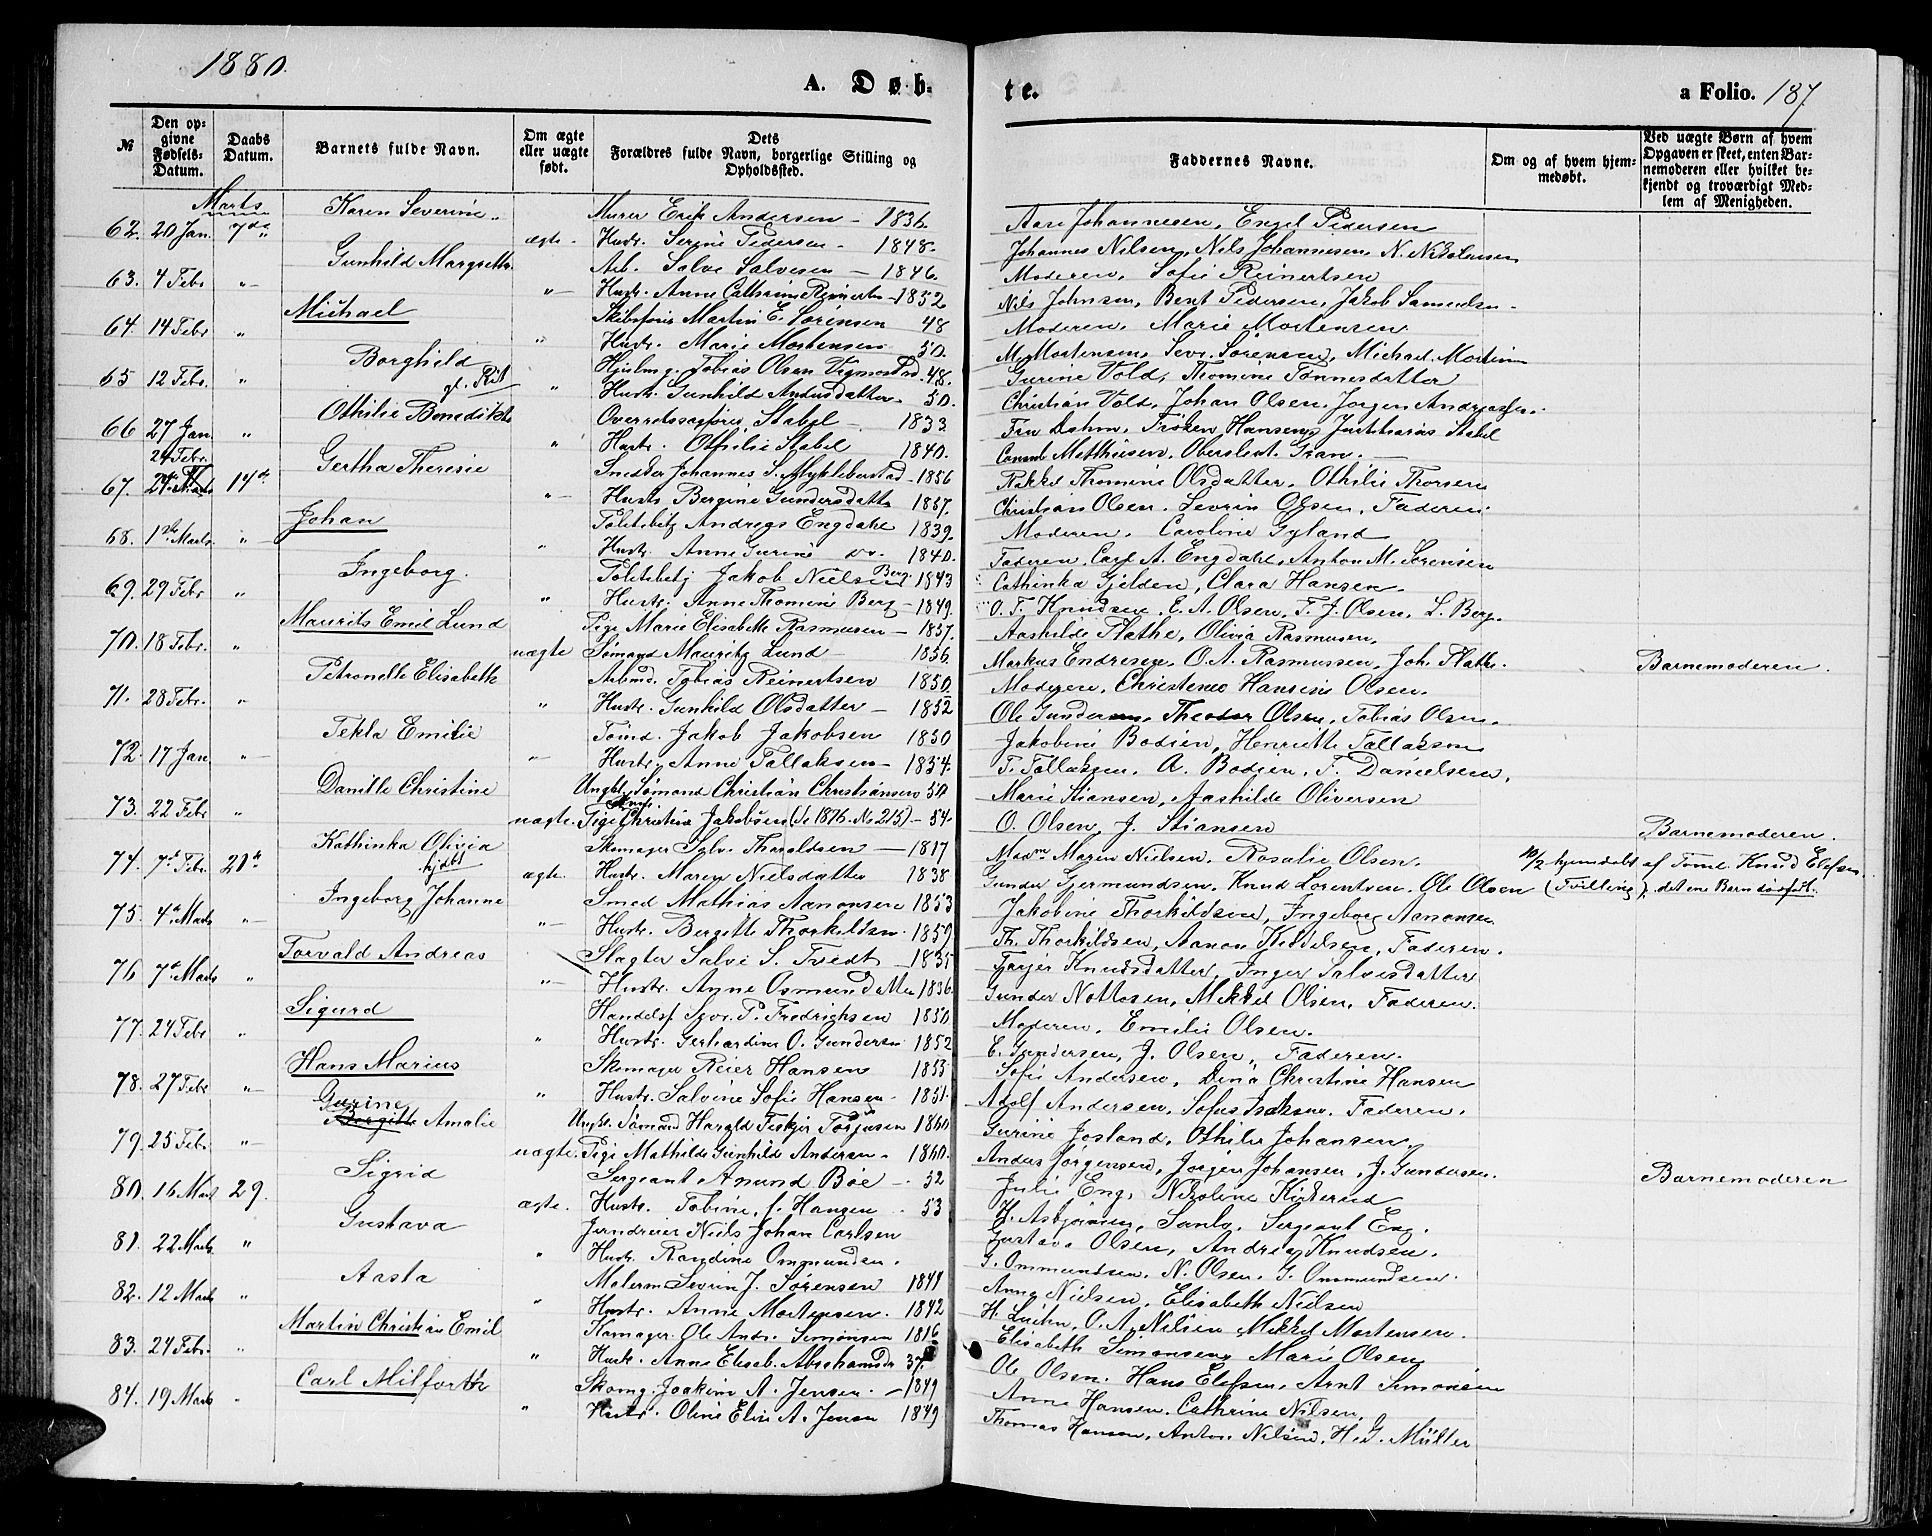 1880.
A. Døb-
te.
a Folio. 187
№
Den op-
givne
Fødsels-
Datum.
Daabs
Datum.
Barnets fulde Navn.
Om ægte
eller uægte
født.
Dets
Forældres fulde Navn, borgerlige Stilling og
Opholdssted.
Faddernes Navne.
Om og af hvem hjem-
medøbt.
Ved uægte Børn af hvem
Opgaven er skeet, enten Bar-
nemoderen eller hvilket be-
kjendt og troværdigt Med-
lem af Menigheden.
Marts
Karen Severine Murer Erik Andersen - 1836. Aase Johannesen, Engel Pedersen
62. 20 Jan. 7de ægte Hustr. Serine Pedersen - 1848. Johannes Nilsen, Nils Johannesen, N. Nikolaisen
Gunhild Margrethe Arb. Salve Salvesen - 1846. Moderen, Sofie Reinertsen
63. 4 Febr. " " Hustr. Anne Cathrine Reinertsen 1852 Nils Johnsen, Bent Pedersen, Jakob Samuelsen
Michael Skibsfører Martin E. Sørensen 48 Moderen, Marie Mortensen.
64. 14 Febr " " Hustr. Marie Mortensen 50. M. Mortensen, Sevr. Sørensen, Michael Mortensen
Borghild Hjulmg. Tobias Olsen 48. Gurine Vold, Thomine Tønnesdatter
65 12 Febr. " " Hustr. Gunhild Andersdatter 50. Christian Vold, Johan Olsen, Jørgen Andreassen.
Othilie Benedikte Overretssagfører Stabel - 1833 Fru Dahm, Frøken Hansen, Justitiarius Stabel
66 27 Jan. " " Hustr. Othilie Stabel 1840. Consul Matthiesen, Oberstleut. Gran.
24 Febr.
Gertha Theresie Snedker Johannes S. Mykleberstad 1856 Rakkel Thomine Olsdatter, Othilie Thorsen
67. 24 Marts 14de " Hustr. Bergine Gundersdatter 1857. Christian Olsen, Severin Olsen, Faderen.
Johan Politibetj. Andreas Engdahl 1839. Moderen, Caroline Gyland
68. 1ste Marts " " Hustr. Anne Gurine do. 1840. Faderen, Carl A. Engdahl, Anton M. Sørensen
Ingeborg. Politibetj. Jakob Nielsen Berg 1843 Cathinka Gjelden, Clara Hansen.
69. 29 Febr " " Hustr. Anne Thomine Berg - 1849. O. T. Knudsen, E. A. Olsen, F. J. Olsen, L. Berg.
Maurits Emil Lund Pige Marie Elisabeth Rasmusen - 1857. Aashilde Flathe, Olivia Rasmusen,
70. 18 Febr. " uægte Sømand Mauritz Lund 1856. Markus Endresen, O. A. Rasmussen, Joh. Flathe. Barnemoderen.
Petronelle Elisabeth Arbmd. Tobias Reinertsen 1850. Moderen, Christence Hansine Olsen.
71. 28 Febr. " " Hustr. Gunhild Olsdatter - 1852 Ole Gundersen, Theodor Olsen, Tobias Olsen.
Tekla Emilie Tømd. Jakob Jakobsen 1850 Jakobine Bodien, Henriette Tallaksen
72. 17 Jan " " Hustr. Anne Tallaksen - 1854. T. Tallaksen, A. Bodien, T. Danielsen,
Danille Christine Ungkl. Sømand Christian Christiansen 50 Marie Stiansen, Aashilde Oliversen
73. 22 Febr " uægte. Pige Christine Jakobsen (Se 1876. No 215) - 54. O. Olsen, J. Stiansen Barnemoderen.
Kathinka Olivia Skomager Sylv. Tharaldsen - 1817 Madm Maren Nielsen, Rosalie Olsen.
74. 7de Febr. 21de hjdbt ægte. Hustr. Maren Nielsdatter 1838 Gunder Gjermundsen, Knud Lorentsen, Ole Olsen 10/2 hjemdøbt af Tømd. Knud Elefsen. (Tvilling), det ene Barn dødfødt.
Ingeborg Johanne Smed Mathias Aanonsen 1853 Jakobine Thorkildsen, Ingeborg Aanonsen
75. 4de Marts " " Hustr. Bergitte Thorkildsen 1859. Th. Thorkildsen, Aanon Kittelsen, Faderen.
Torvald Andreas Slagter Salve S. Tvedt 1835 Torjer Knudsdatter, Inger Salvesdatter
76. 7de Marts " " Hustr. Anne Osmundsdatter 1836. Gunder Nottosen, Mikkel Olsen, Faderen.
Sigurd Handelsf. Sgvr. P. Fredriksen 1850 Moderen, Emilie Olsen.
77. 24 Febr " " Hustr. Gerhardine O. Gundersen 1852 E. Gundersen, J. Olsen, Faderen.
Hans Marius Skomager Reier Hansen 1853 Sofie Andersen, Dina Christine Hansen
78. 27 Febr " " Hustr. Salvine Sofie Hansen 1851. Adolf Andersen, Sofus Isaksen, Faderen.
Gurine
Bergitte Amalie Ungk. Sømand Harald Feskjer Torjusen 1860 Gurine Josland, Othilie Johansen,
79. 25 Febr. " uægte. Pige Mathilde Gunhilde Andersen 1860. Anders Jørgensen, Jørgen Johansen, J. Gundersen. Barnemoderen
Sigrid Sergeant Anund Bøe 52 Julie Eng, Nikoline Kirkerud
80. 16 Marts 29. ægte. Hustr. Tobine, f. Hansen 53 H. Asbjørnsen, Sergeant Eng.
Gustava Jerndreier Niels Johan Carlsen Gustava Olsen, Andrea Knudsen.
81. 22 Marts " " Hustr. Randine Ommundsen. G. Ommundsen, N. Olsen, G. Ommundsen.
Aasta Malerm. Sevrin J. Sørensen 1841 Anna Nielsen, Elisabeth Nielsen
82. 12 Marts " " Hustr. Anne Mortensen. 1842 O. A. Nilsen Mikkel Mortensen.
Martin Christian Emil Kamager. Ole Andr. Simonsen 1816 Elisabeth Simonsen, Marie Olsen
83. 24 Febr. " " Hustr. Anne Elisab. Abrahamsdr 37. Ole Olsen, Hans Elefsen, Arnt Simonsen
Carl Milforth Skomg. Joakim A. Jensen. - 1849 Anne Hansen, Cathrine Nilsen,
84. 19 Marts " " Hustr. Oline Elise A. Jensen 1849 Thomas Hansen, Anton Nilsen, H. G. Müller